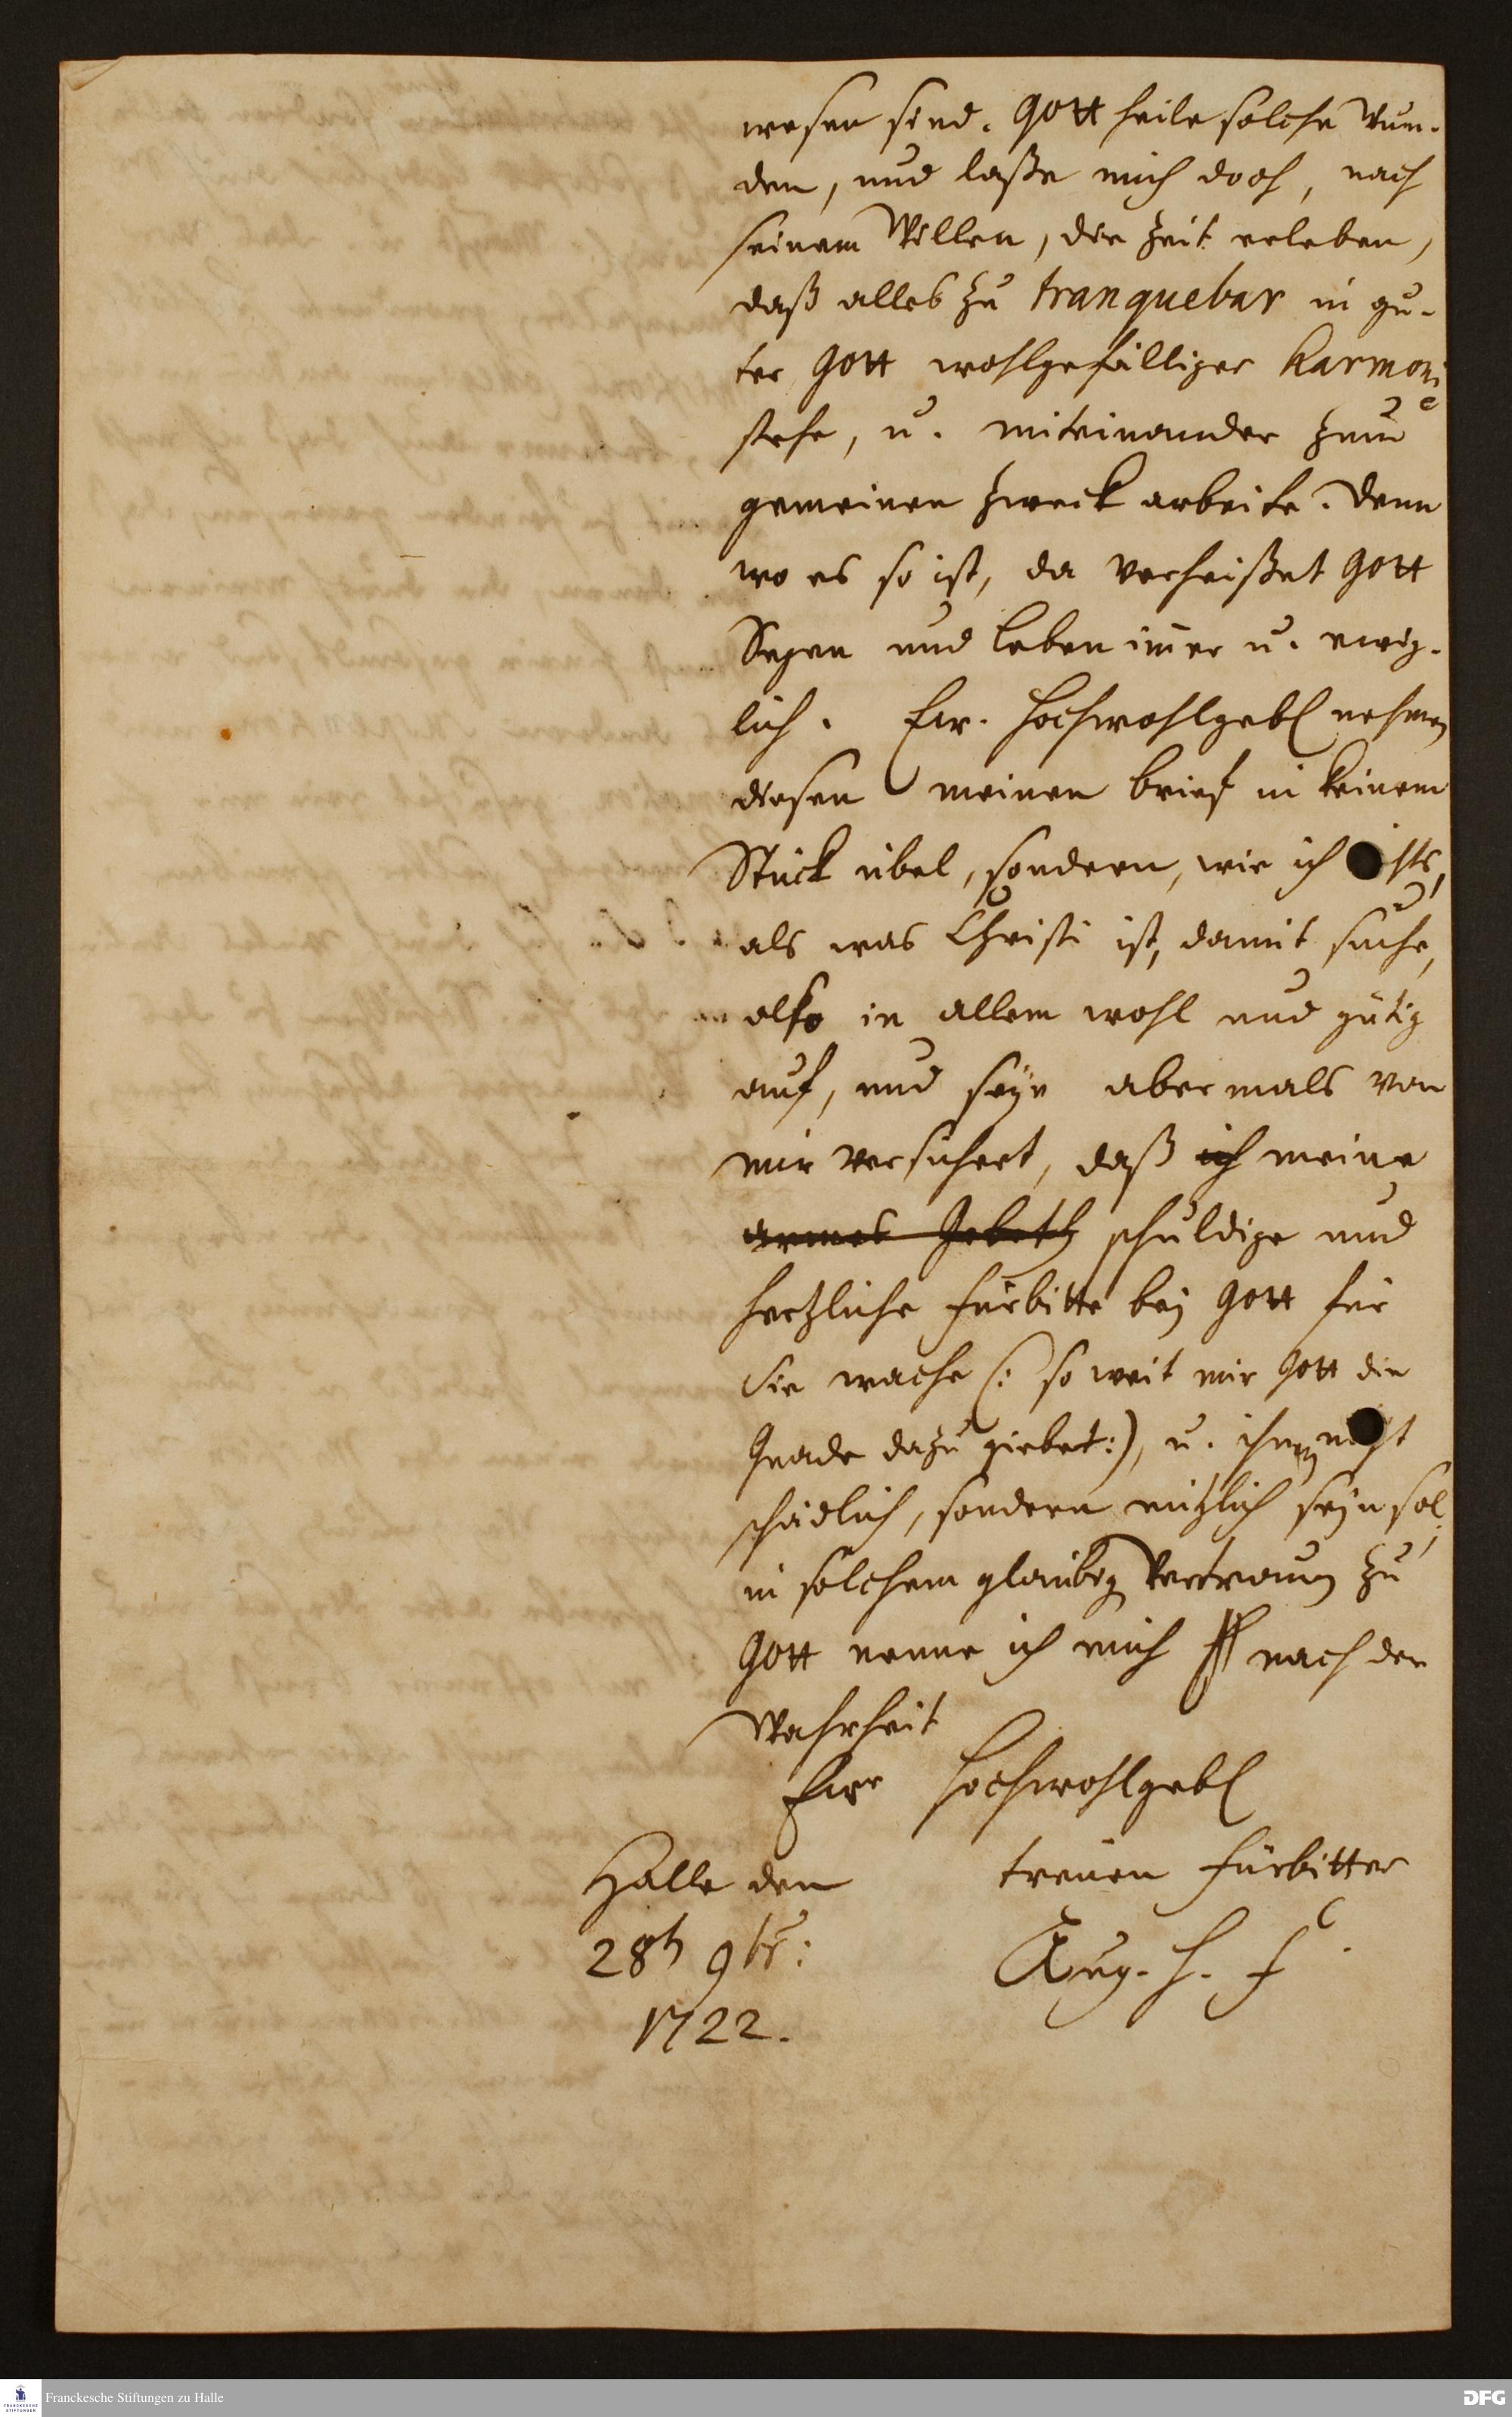 wesen sind. Gott heile solche Wun-
den, und laße mich doch, nach
seinem Willen, die Zeit erleben,
daß alles zu tranquebar in gu-
ter Gott wohlgefälliger harmoni
e
stehe, u. miteinander zum
gemeinen Zweck arbeite. Denn
wo es so ist, da verheißet Gott
Segen und Leben im̅er u. ewig-
lich. Ew. Hochwohlgebl nehmen
diesen meinen brief in keinem
Stück übel, sondern, wie ich
als was Christi ist, damit suche,
also in allem wohl und gütig
auf, und seyn abermals von
mir versichert, daß ich meine
armes Gebeth schuldige und
hertzliche fürbitte bey Gott für
Sie wache (: so weit mir Gott die
Gnade dazu giebet:), u. ihnen nicht
schädlich, sondern nützlich seyn sol;
in solchem glaubig Vertrauen zu
Gott nenne ich mich nach der
Wahrheit
Ewr Hochwohlgebl
Halle den
treuen fürbitter
28t 9br:
Aug. H. F.
1722.
Franckesche Stiftungen zu Halle
FRANCKESCHE STIFTUNGEN
DFG